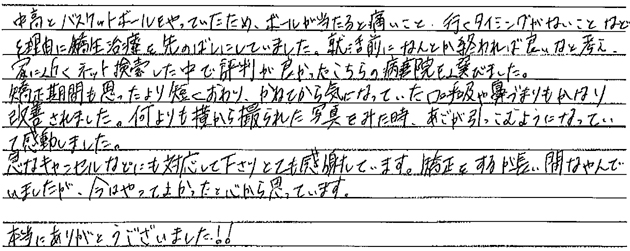 中高とバスケットボールをやっていたため、ボールが当たると痛いこと、行くタイミングがないことなど
を理由に矯正治療を先のばしにしていました。就活前になんとか終われば良いなと考え、
家に近くネット検索した中で評判が良かったこちらの病院を選びました。
矯正期間も思ったより短くおわり、かねてから気になっていた口呼吸や鼻づまりもかなり
改善されました。何よりも横から撮られた写真をみた時、あごが引っこむようになってい
て感動しました。
急なキャンセルなどにも対応して下さりとても感謝しています。矯正をするか長い間なやんで
いましたが、今はやってよかったと心から思っています。
本当にありがとうございました!!